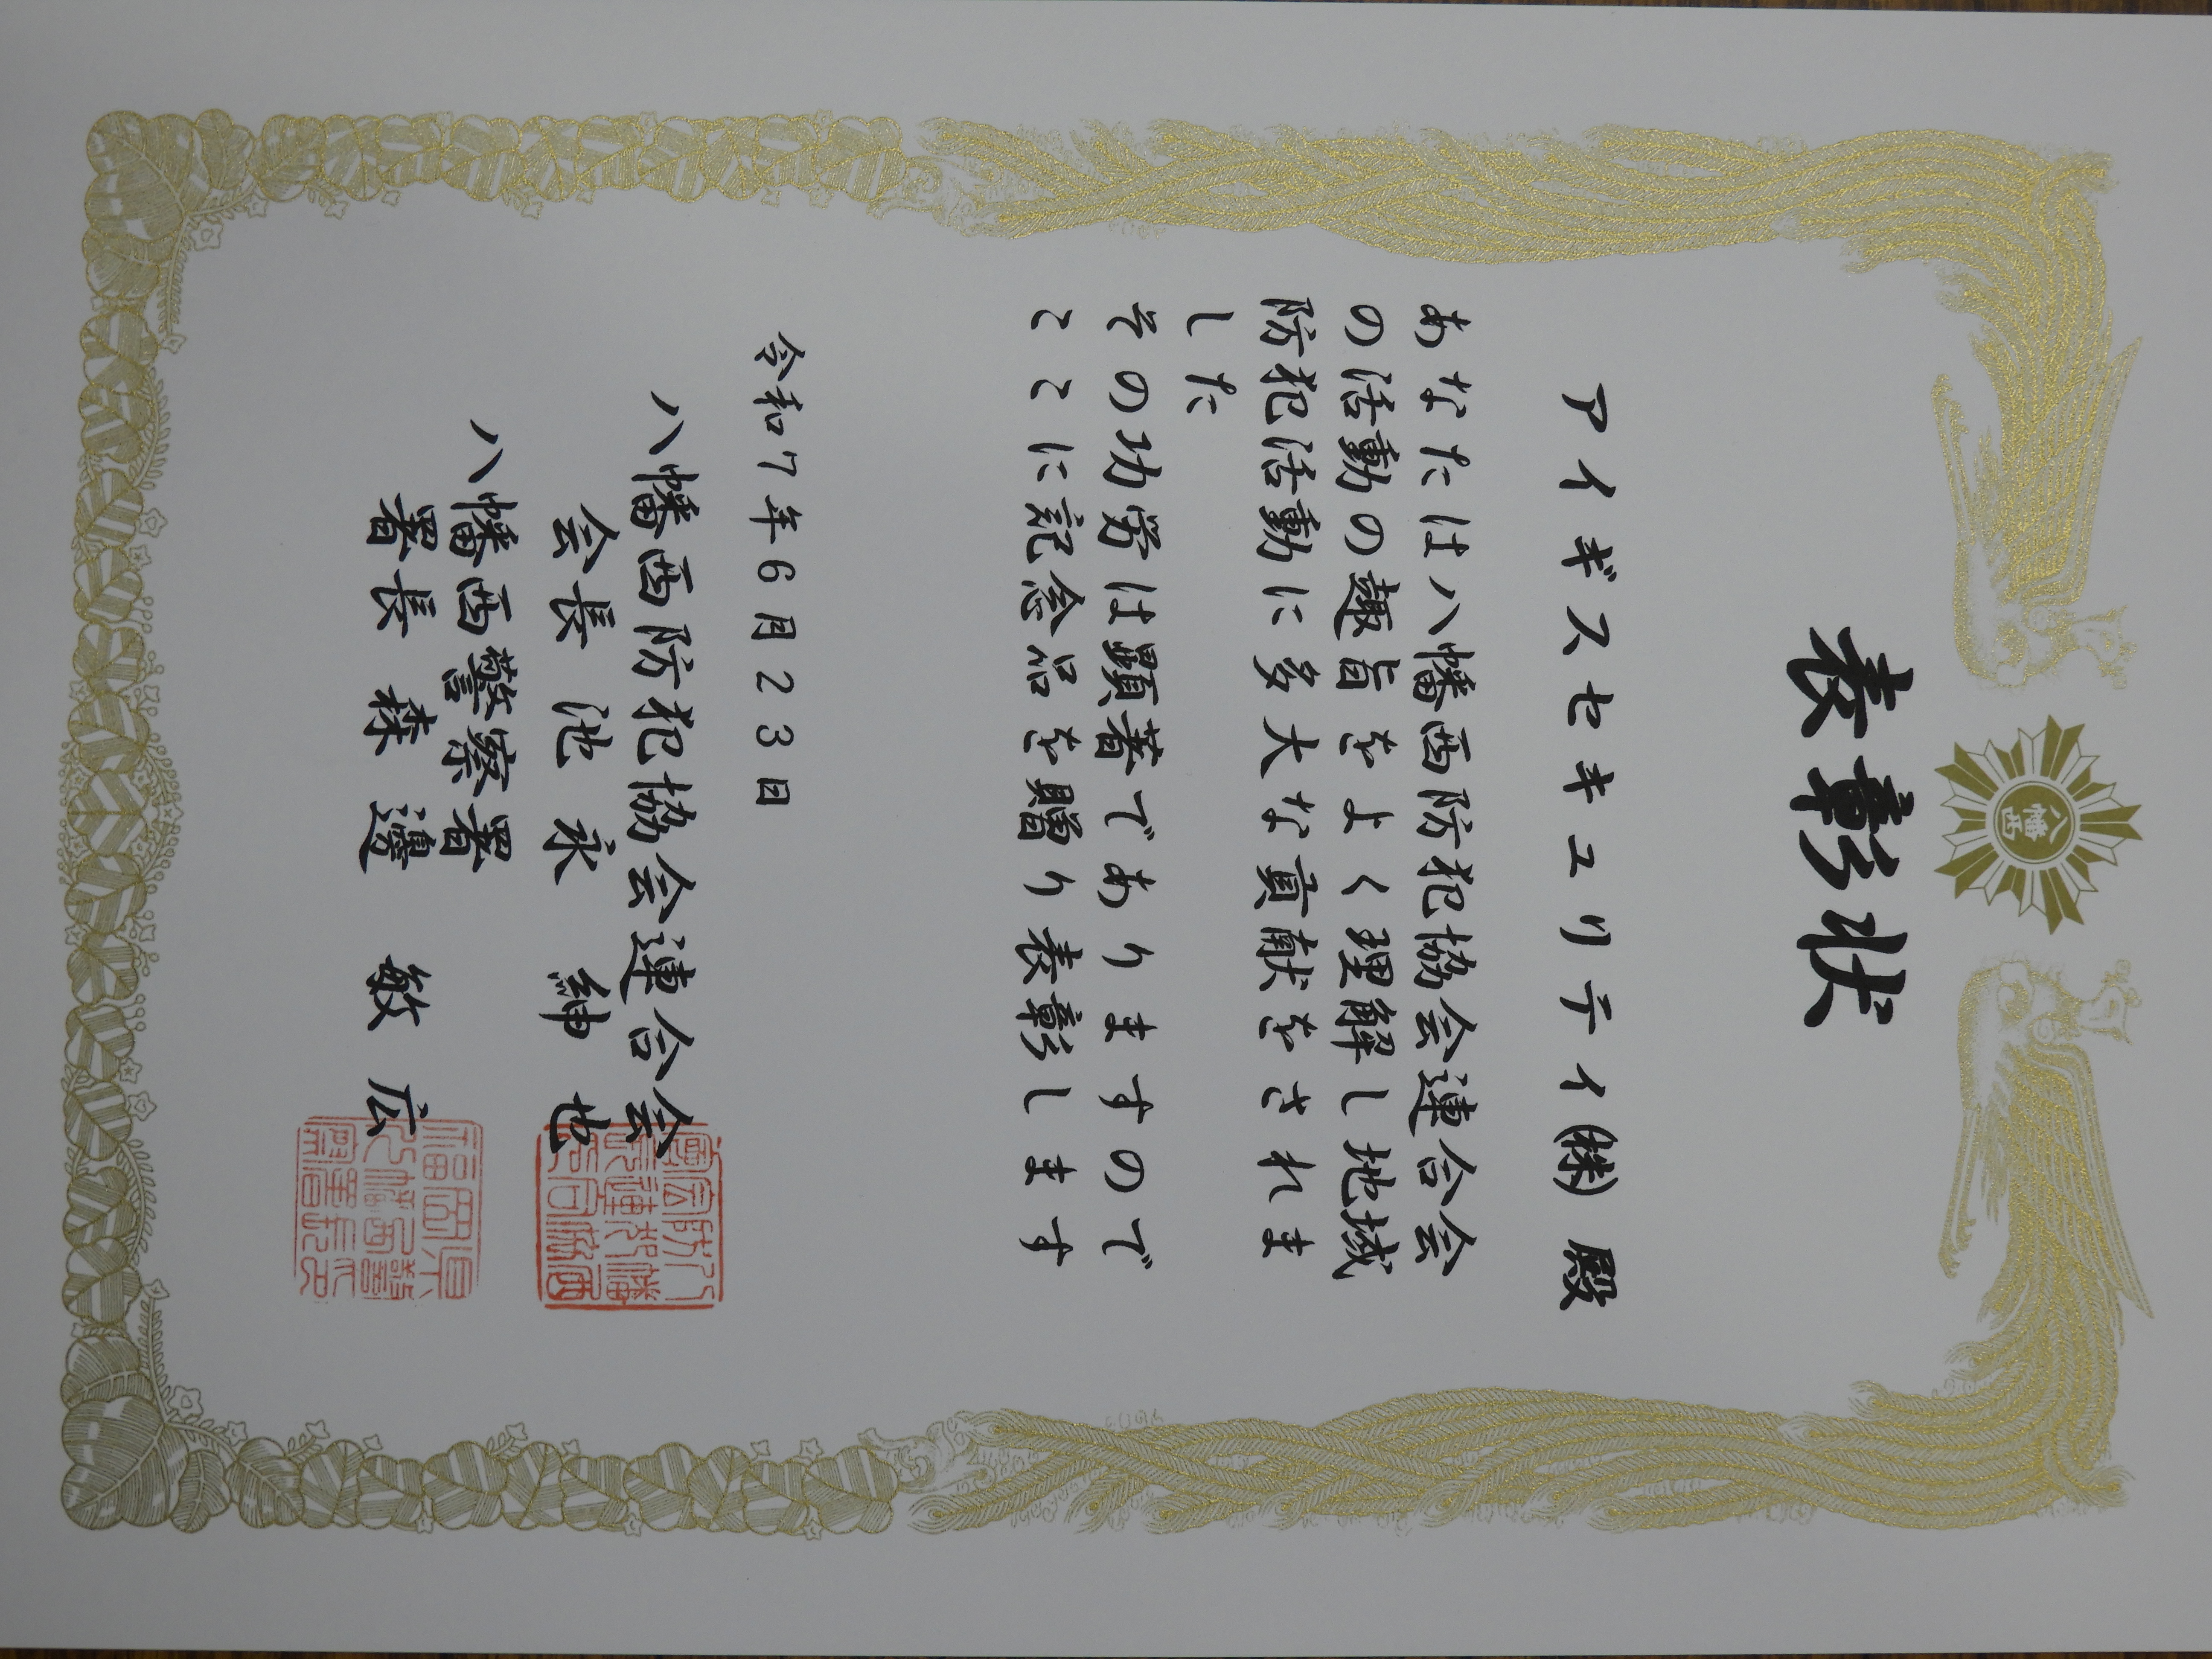 表彰状
八幡西
アイギスセキュリティ㈱ 殿
あなたは八幡西防犯協会連合会
の活動の趣旨をよく理解し地域
防犯活動に多大な貢献をされま
した
その功労は顕著でありますので
ここに記念品を贈り表彰します
令和7年6月23日
八幡西防犯協会連合会
会長 池永 紳也
八幡西警察署
署長 森邊 敏広